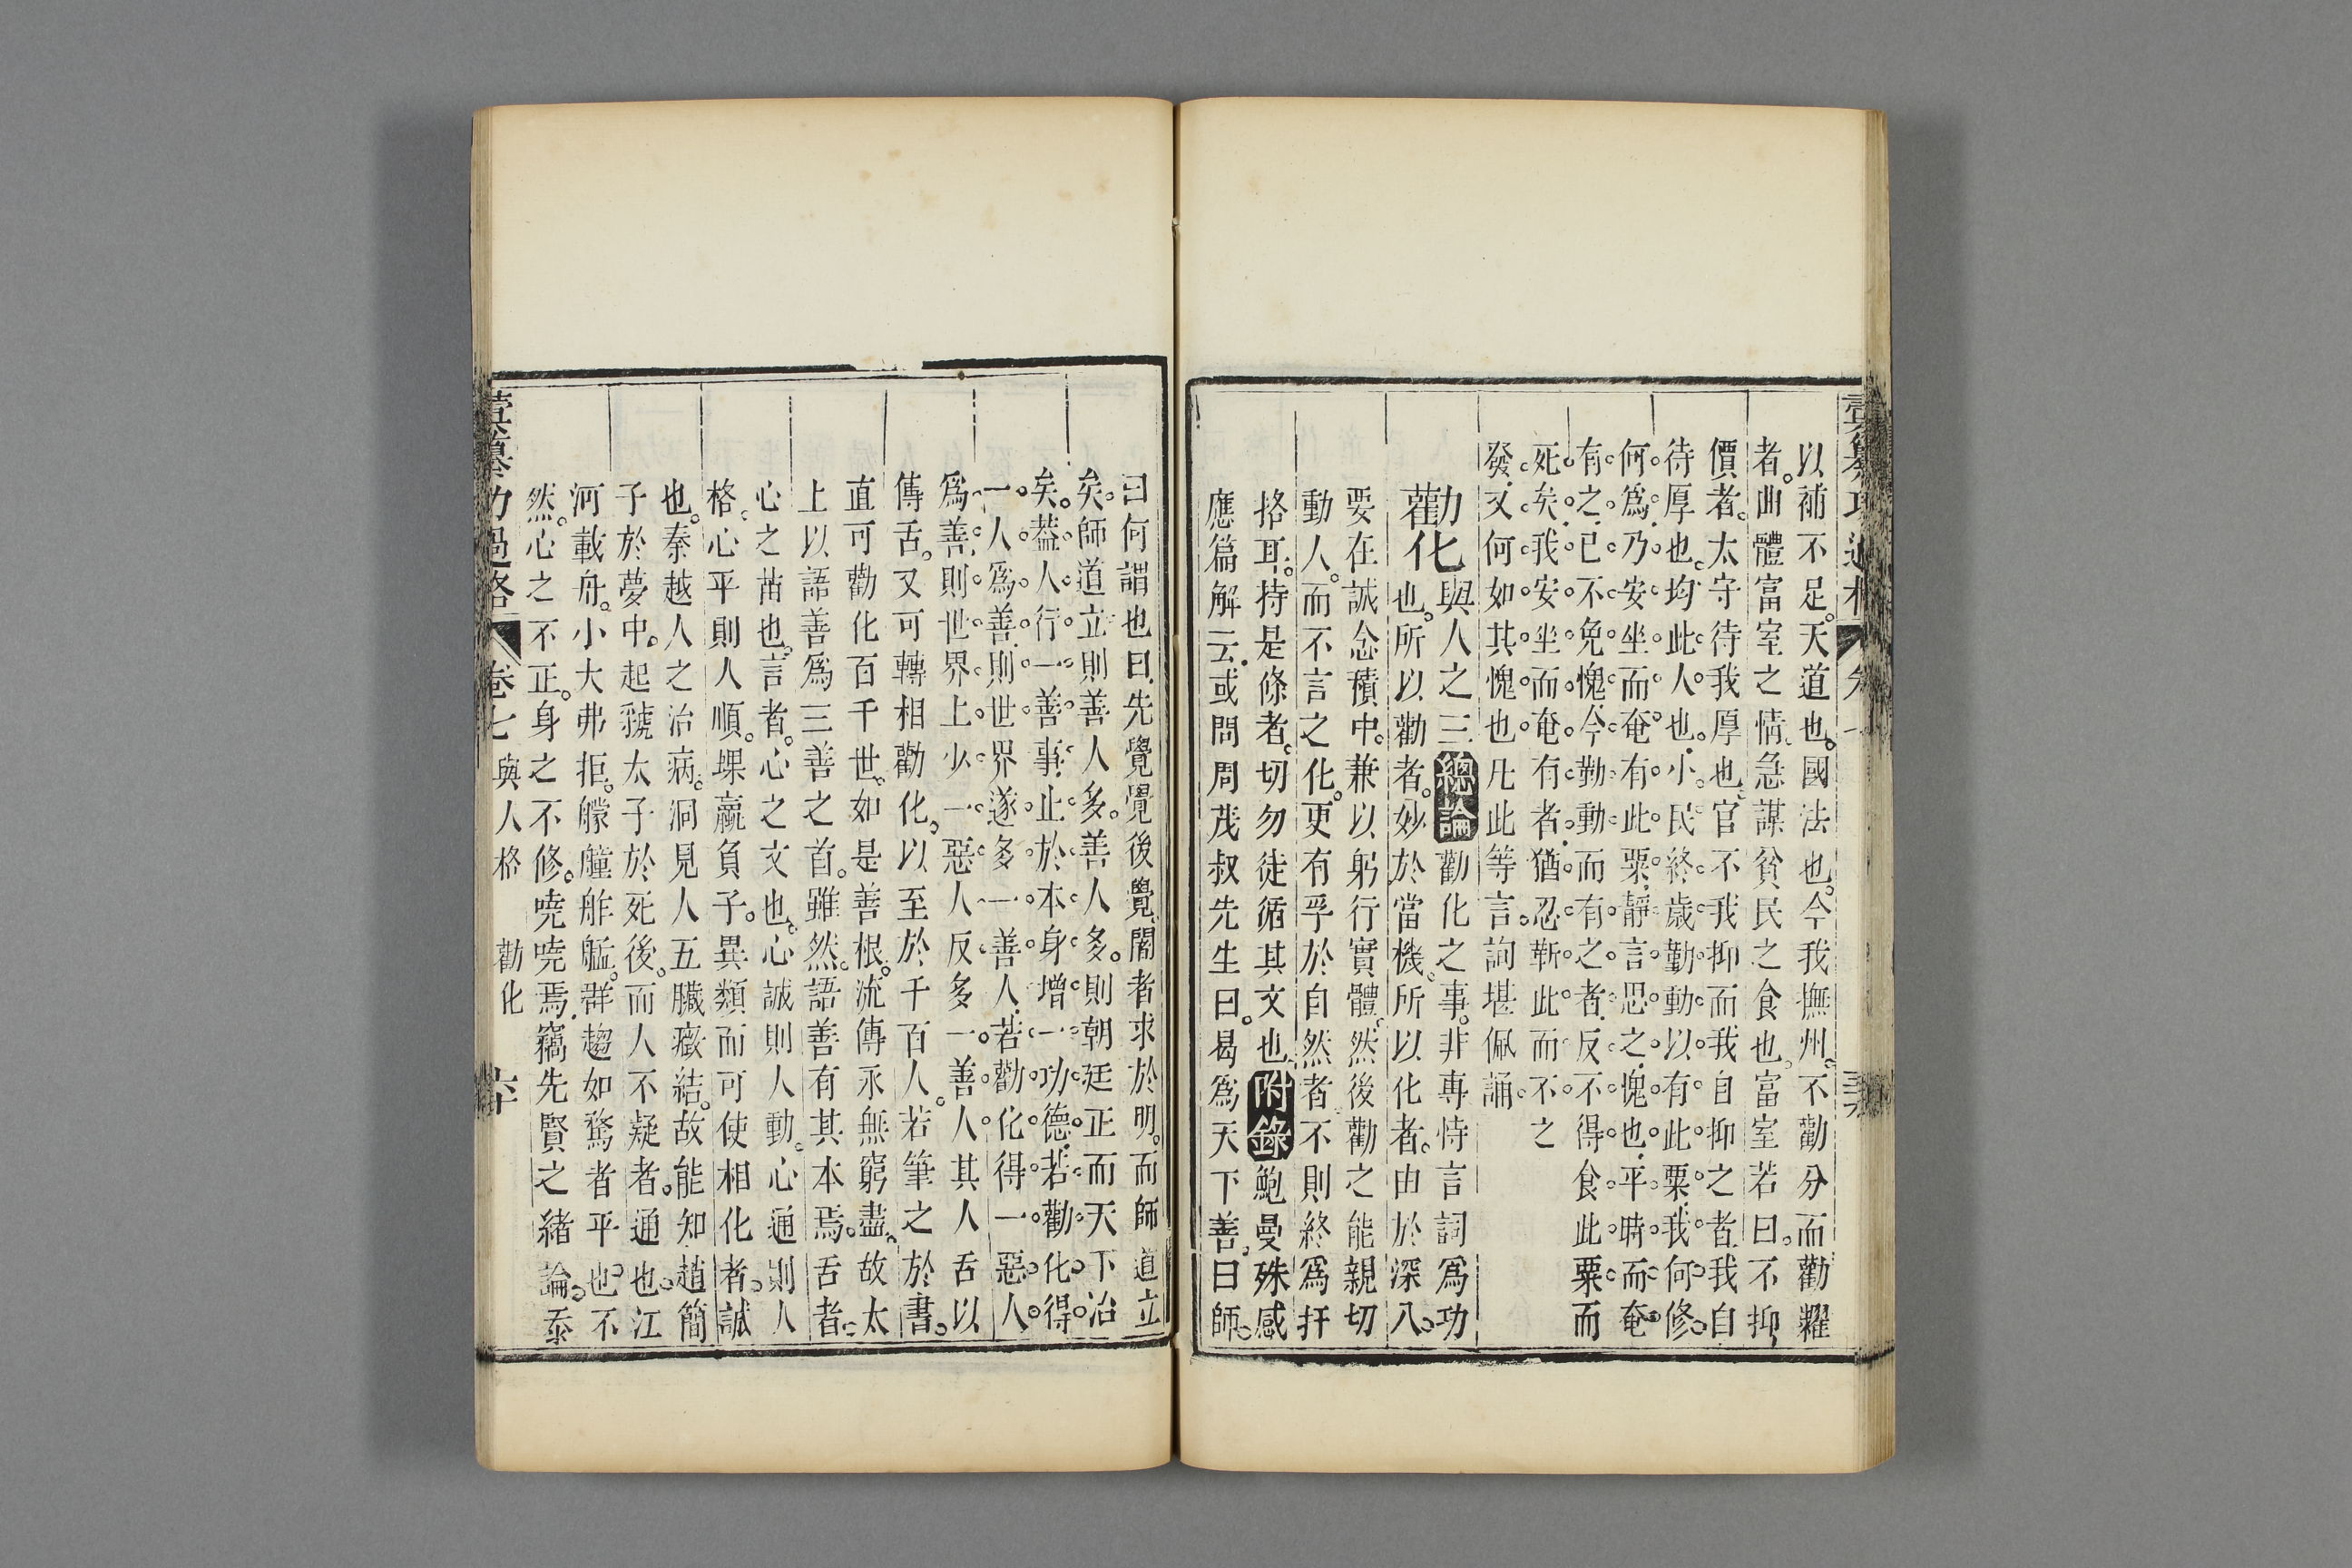 以補不足。天道也。國法也。今我撫州。不勸分而勸糶
者。曲體富室之情。急謀貧民之食也。富室若曰。不抑
價者。太守待我厚也。官不我抑而我自抑之者。我自
待厚也。均此人也。小民終歲勤動以有此粟。我何修
何為。乃安坐而奄有此粟。靜言思之。愧也。平時而奄
有之。已不免愧。今勤動而有之者。反不得食此粟而
死矣。我安坐而奄有者。猶忍靳此而不之
發。又何如其愧也。凡此等言。詞堪佩誦。
勸化 與人之三 總論 勸化之事。非專恃言詞為功
也。所以勸者。妙於當機。所以化者。由於深入。
要在誠念積中。兼以躬行實體。然後勸之能親切
動人。而不言之化。更有孚於自然者。不則終為扞
挌耳。持是條者。切勿徒循其文也。 附錄 鮑曼殊感
應篇解云。或問周茂叔先生曰。曷為天下善。曰師。
曰何謂也。曰。先覺覺後覺。闇者求於明。而師道立
矣。師道立則善人多。善人多。則朝廷正而天下治
矣。葢人行一善事。止於本身增一功德。若勸化得
一人為善。則世界遂多一善人。若勸化得一惡人
為善。則世界上少一惡人。反多一善人。其人舌以
傳舌。又可轉相勸化。以至於千百人。若筆之於書。
直可勸化百千世。如是善根。流傳永無窮盡。故太
上以語善為三善之首。雖然。語善有其本焉。舌者。
心之苗也。言者。心之文也。心誠則人動。心通則人
格。心平則人順。蜾蠃負子。異類而可使相化者。誠
也。秦越人之治病。洞見人五臟癥結。故能知趙簡
子於夢中。起虢太子於死後。而人不疑者。通也。江
河載舟。小大弗拒。艨艟舴艋。群趨如騖者平也。不
然。心之不正。身之不修。嘵嘵焉。竊先賢之緒論。忝
彚纂功過格 卷七 與人格 勸化 六十